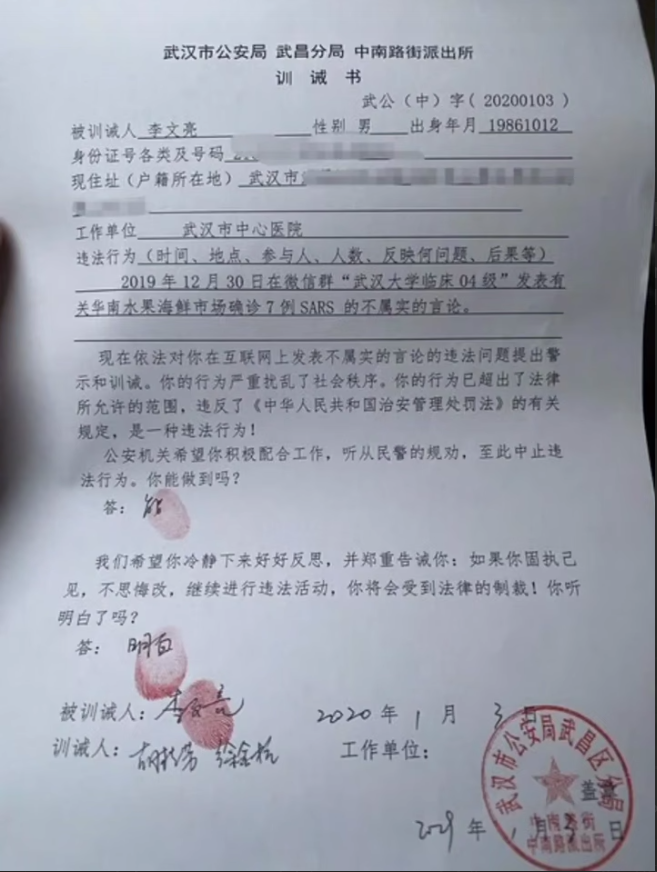 武汉市公安局 武昌分局 中南路街派出所
训 诫 书
武公（中）字（20200103）
被训诫人 李文亮 性别 男 出身年月 19861012
身份证号各类及号码
现住址（户籍所在地） 武汉市
工作单位 武汉市中心医院
违法行为（时间、地点、参与人、人数、反映何问题、后果等）
2019年12月30日在微信群“武汉大学临床04级”发表有
关华南水果海鲜市场确诊7例SARS 的不属实的言论。
现在依法对你在互联网上发表不属实的言论的违法问题提出警
示和训诫。你的行为严重扰乱了社会秩序。你的行为已超出了法律
所允许的范围，违反了《中华人民共和国治安管理处罚法》的有关
规定，是一种违法行为！
公安机关希望你积极配合工作，听从民警的规劝，至此中止违
法行为。你能做到吗？
答： 能
我们希望你冷静下来好好反思，并郑重告诫你：如果你固执己
见，不思悔改，继续进行违法活动，你将会受到法律的制裁！你听
明白了吗？
答： 明白
被训诫人：李文亮 2020年 1 月 3 日
训诫人： 工作单位：
武汉市公安局武昌区分局
中南路街
中南路派出所
年 月 日